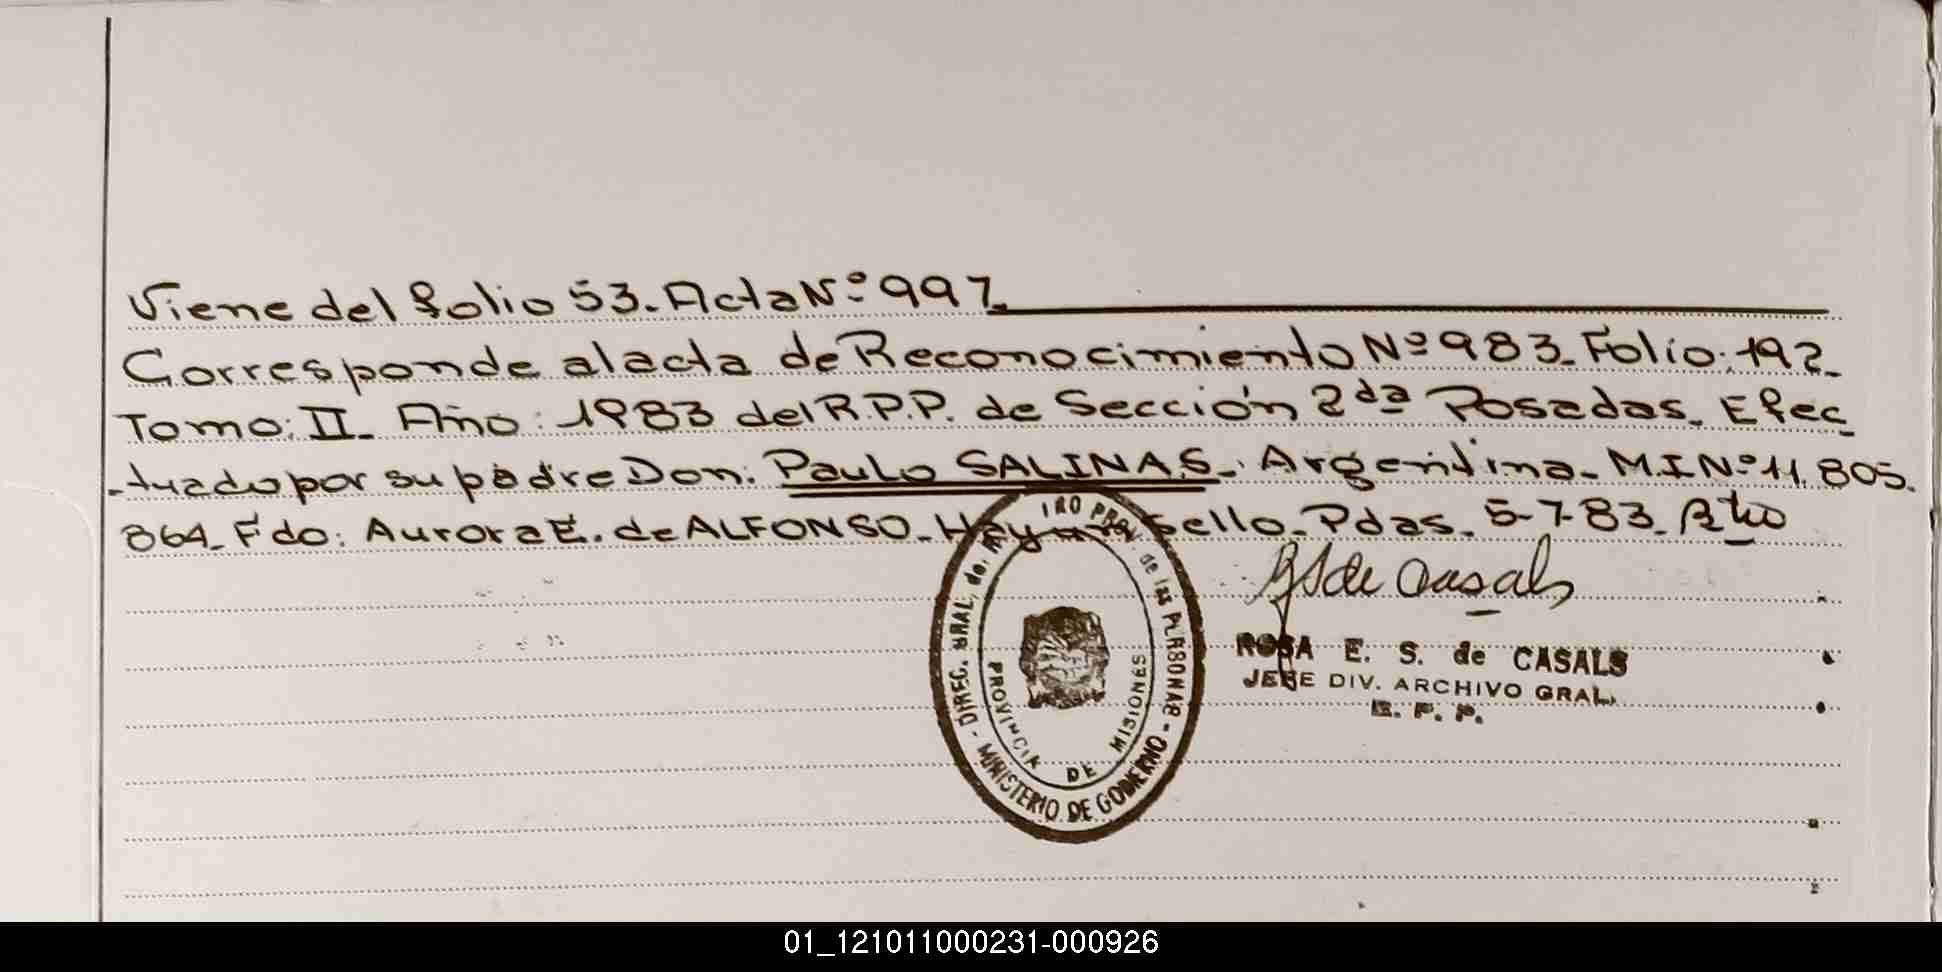 Viene del folio 53. Acta Nº 997.
Corresponde al acta de Reconocimiento Nº 983. Folio: 192.
Tomo: II. Año: 1983 del R.P.P. de Sección 2da Posadas. Efec
-tuado por su padre Don: Paulo SALINAS. Argentina. M.I Nº 11.805.
864. Fdo: Aurora E. de ALFONSO. Hay un sello. Pdas. 5-7-83.
de Casals
ROSA E. S. de CASALS
JEFE DIV. ARCHIVO GRAL.
DIREC. GRAL. de PROV. de las PERSONAS - MINISTERIO DE GOBIERNO -
PROVINCIA DE MISIONES
01_121011000231-000926